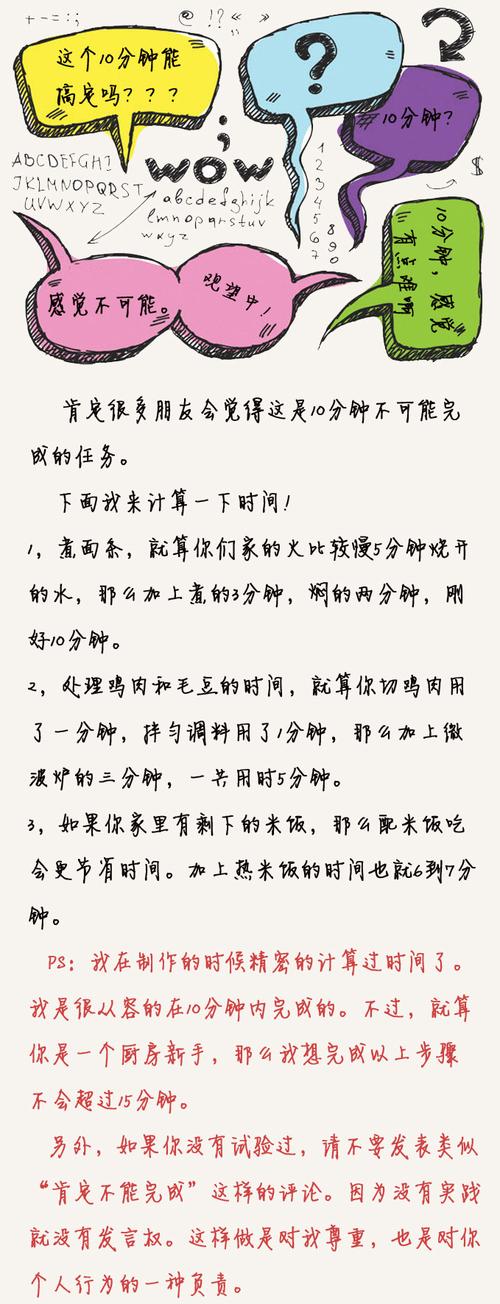 +-=:;
@ !?« »
这个10分钟能
搞定吗？？？
?
10分钟？
;
WOW
ABCDEFGHI
JKLMNOPQRST
UVWXYZ
abcdefghijk
lmnopqrstuv
wxyz
1
2
3
4
5
6
7
8
9
0
$
10分钟，感觉
有点难啊
感觉不可能。
观望中！
肯定很多朋友会觉得这是10分钟不可能完
成的任务。
下面我来计算一下时间！
1，煮面条，就算你们家的火比较慢5分钟烧开
的水，那么加上煮的3分钟，焖的两分钟，刚
好10分钟。
2，处理鸡肉和毛豆的时间，就算你切鸡肉用
了一分钟，拌匀调料用了1分钟，那么加上微
波炉的三分钟，一共用时5分钟。
3，如果你家里有剩下的米饭，那么配米饭吃
会更节省时间。加上热米饭的时间也就6到7分
钟。
PS：我在制作的时候精密的计算过时间了。
我是很从容的在10分钟内完成的。不过，就算
你是一个厨房新手，那么我想完成以上步骤
不会超过15分钟。
另外，如果你没有试验过，请不要发表类似
“肯定不能完成”这样的评论。因为没有实践
就没有发言权。这样做是对我尊重，也是对你
个人行为的一种负责。